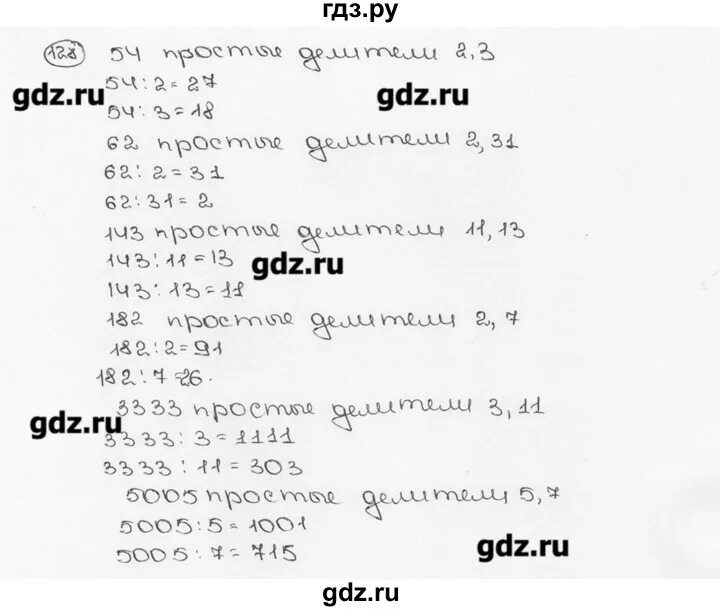 гдз.ру
128 54 простые делители 2,3
54:2=27
gdz.ru gdz.ru
54:3=18
62 простые делители 2,31
62:2=31
62:31=2
143 простые делители 11,13
143:11=13
gdz.ru
143:13=11
182 простые делители 2,7
182:2=91
182:7=26.
3333 простые делители 3,11
gdz.ru
3333:3=1111
3333:11=303
5005 простые делители 5,7
5005:5=1001
5005:7=715
gdz.ru
gdz.ru